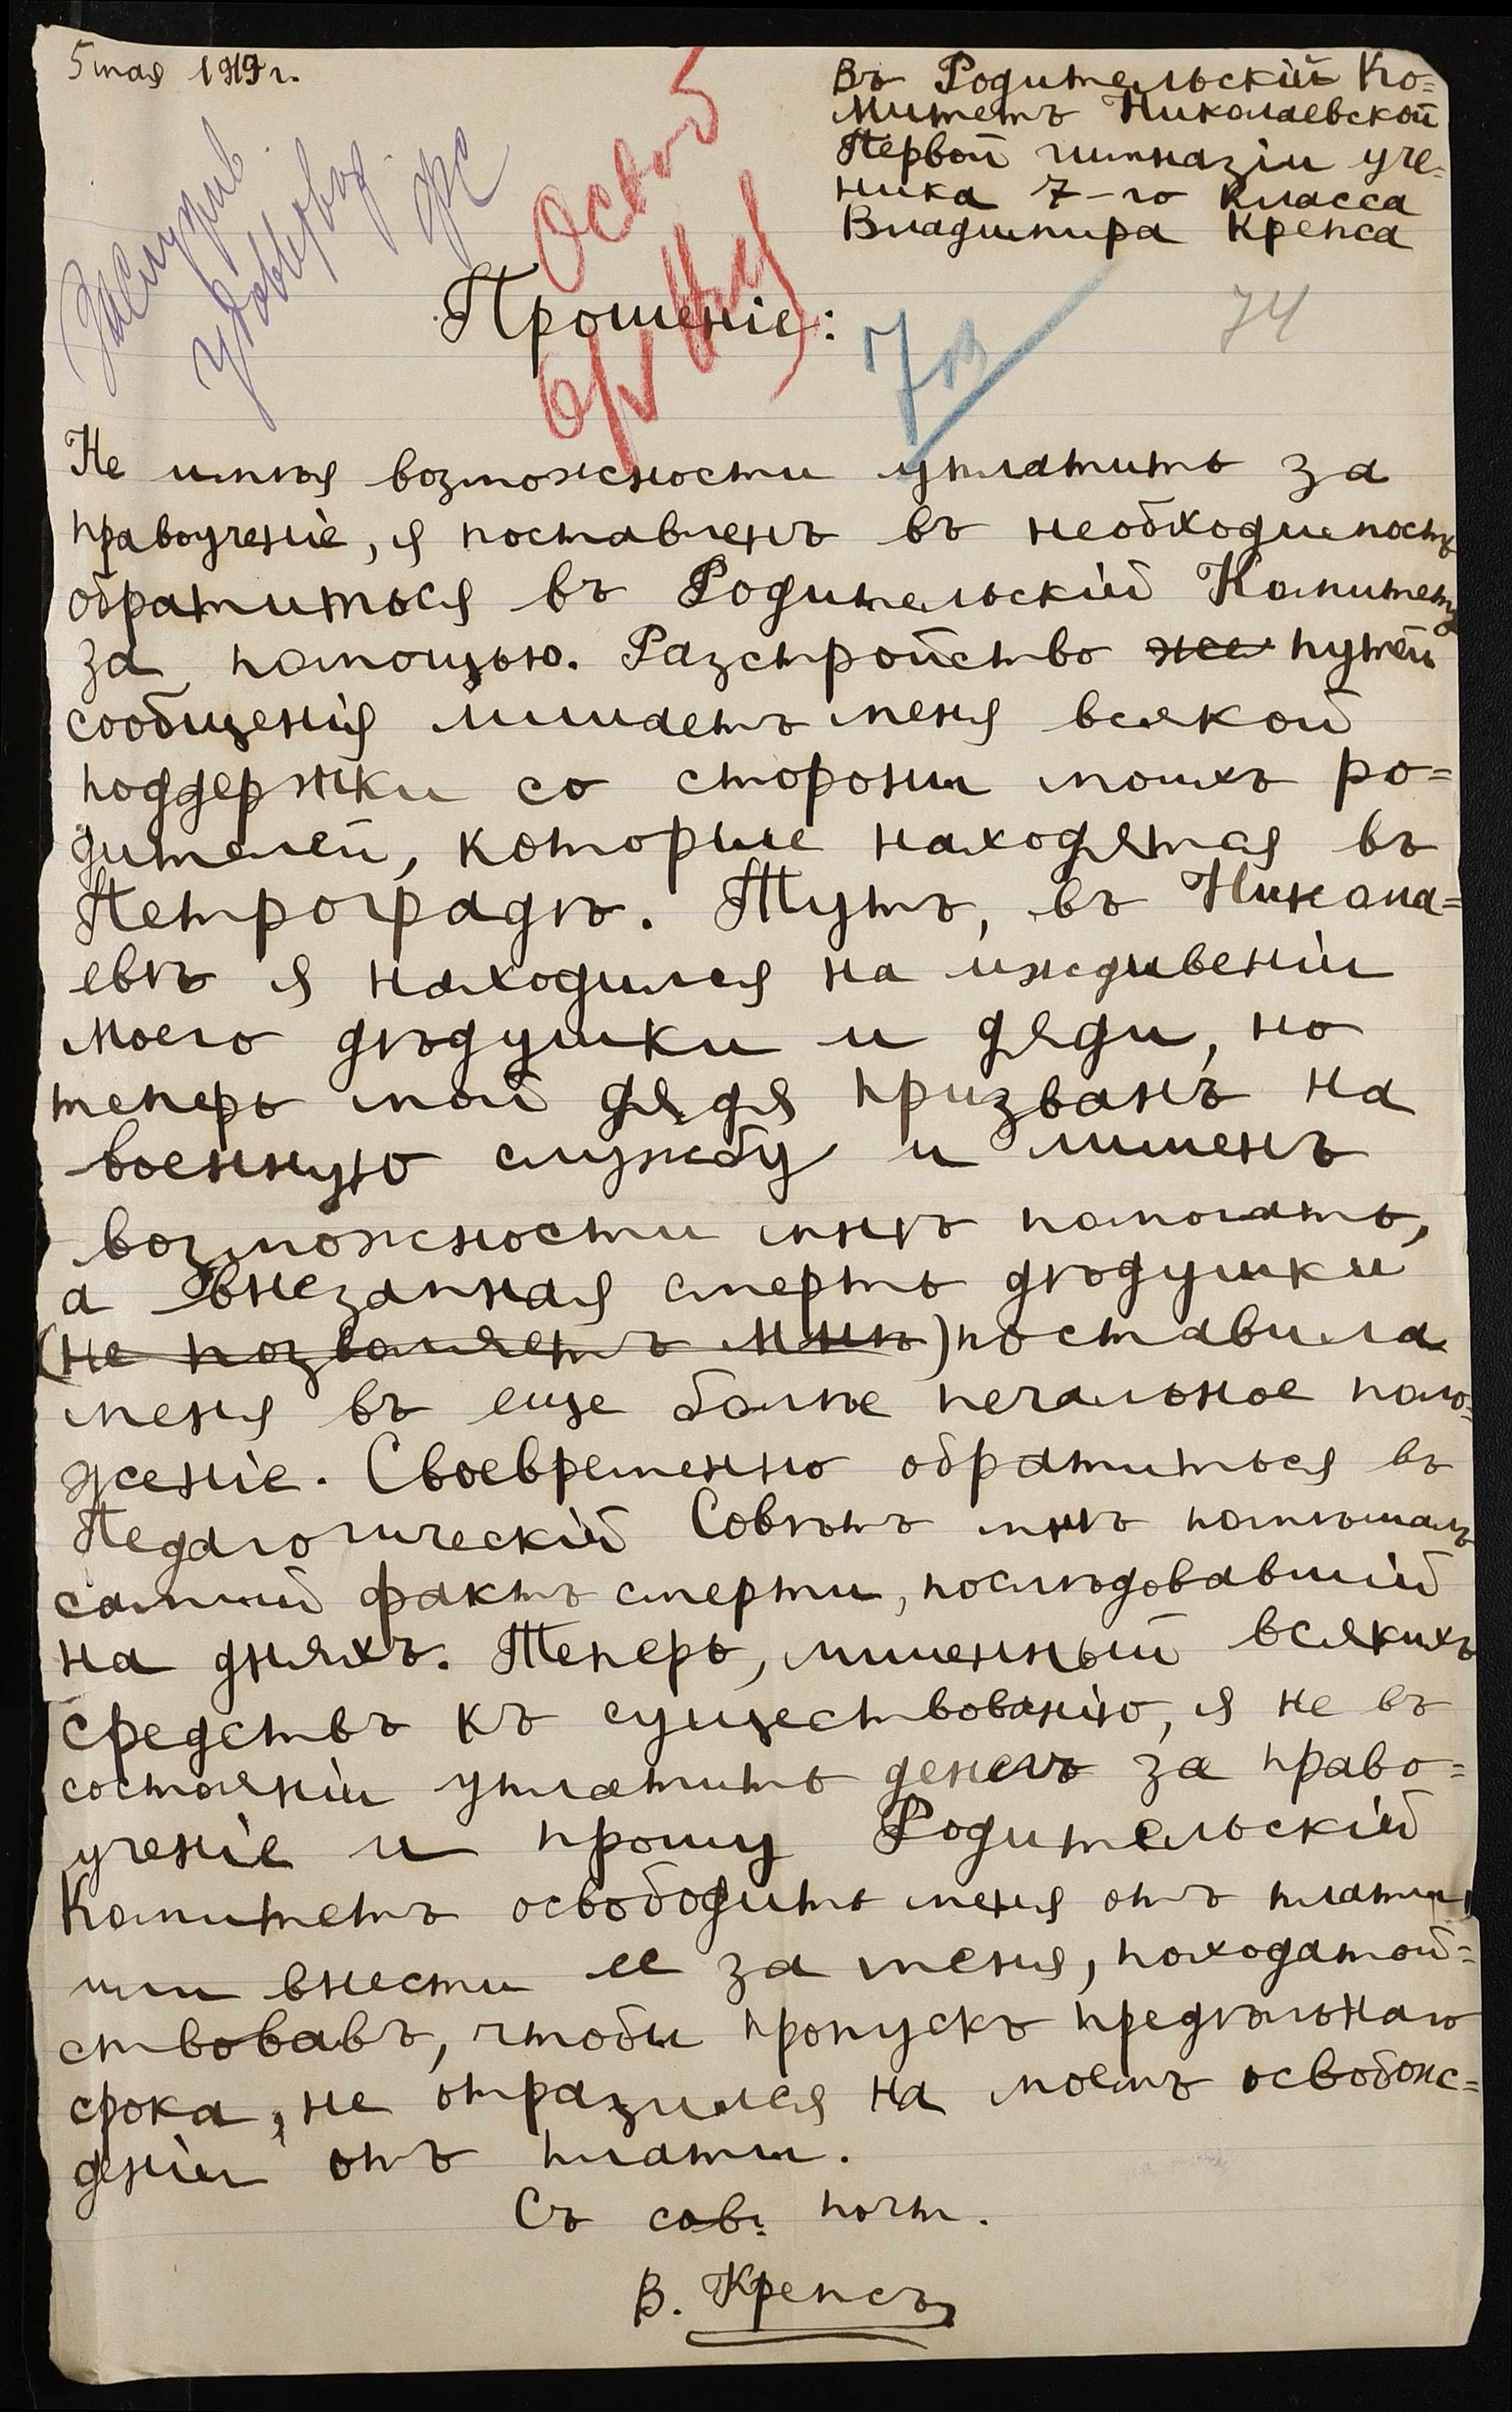 5 мая 1919 г.
Въ Родительскій Ко=
митетъ Николаевской
Первой гимназіи уче-
ника 7-го класса
Владимира Крепса
74
Прошеніе:
Не имѣя возможности уплатить за
правоученіе, я поставленъ въ необходимость
обратиться въ Родительскій Комитетъ
за помощью. Разстройство же путей
сообщенія лишаетъ меня всякой
поддержки со стороны моихъ ро=
дителей, которые находятся въ
Петроградѣ. Тутъ, въ Никола=
евѣ я находился на иждивеніи
моего дѣдушки и дяди, но
теперь мой дядя призванъ на
военную службу и лишенъ
возможности мнѣ помогать,
а внезапная смерть дѣдушки
(не позволяетъ мнѣ) поставила
меня въ еще болѣе печальное поло=
женіе. Своевременно обратиться въ
Педагогическій Совѣтъ мнѣ помѣшалъ
самый фактъ смерти, послѣдовавшій
на дняхъ. Теперь, лишенный всякихъ
средствъ къ существованію, я не въ
состояніи уплатить денегъ за право=
ученіе и прошу Родительскій
Комитетъ освободить меня отъ платы,
или внести ее за меня, походатай=
ствовавъ, чтобы пропускъ предѣльнаго
срока, не отразился на моемъ освобож=
деніи отъ платы.
Съ сов. почт.
В. Крепсъ